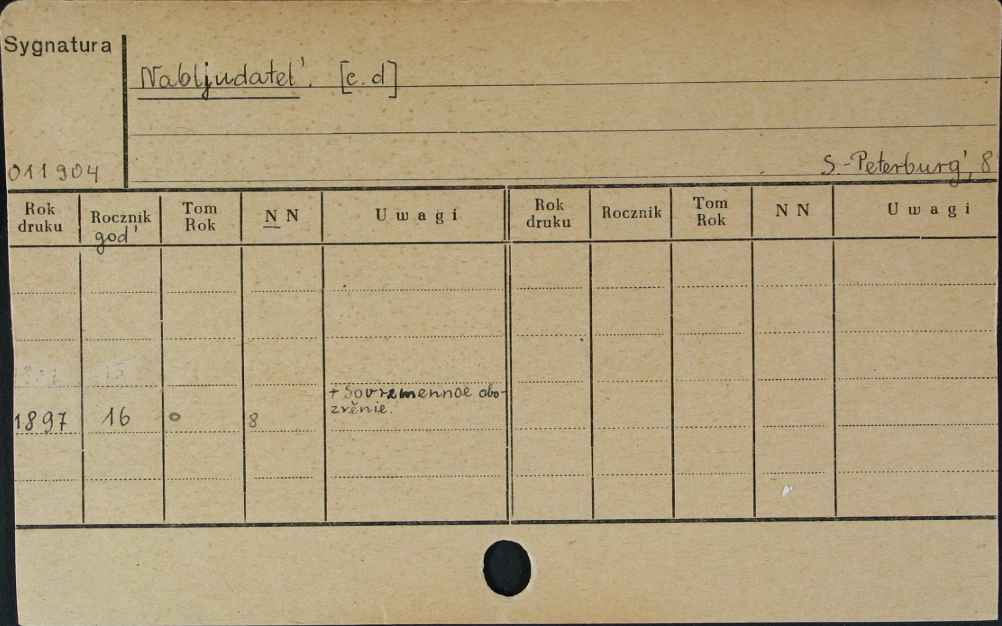 Sygnatura
Nabljudatel'. [c.d]
011904
S.-Peterburg', 8
Rok druku Rocznik god' Tom Rok N N U w a g i Rok druku Rocznik Tom Rok N N U w a g i
+ Sovremennoe obo-
zrěnie.
1897 16 o 8